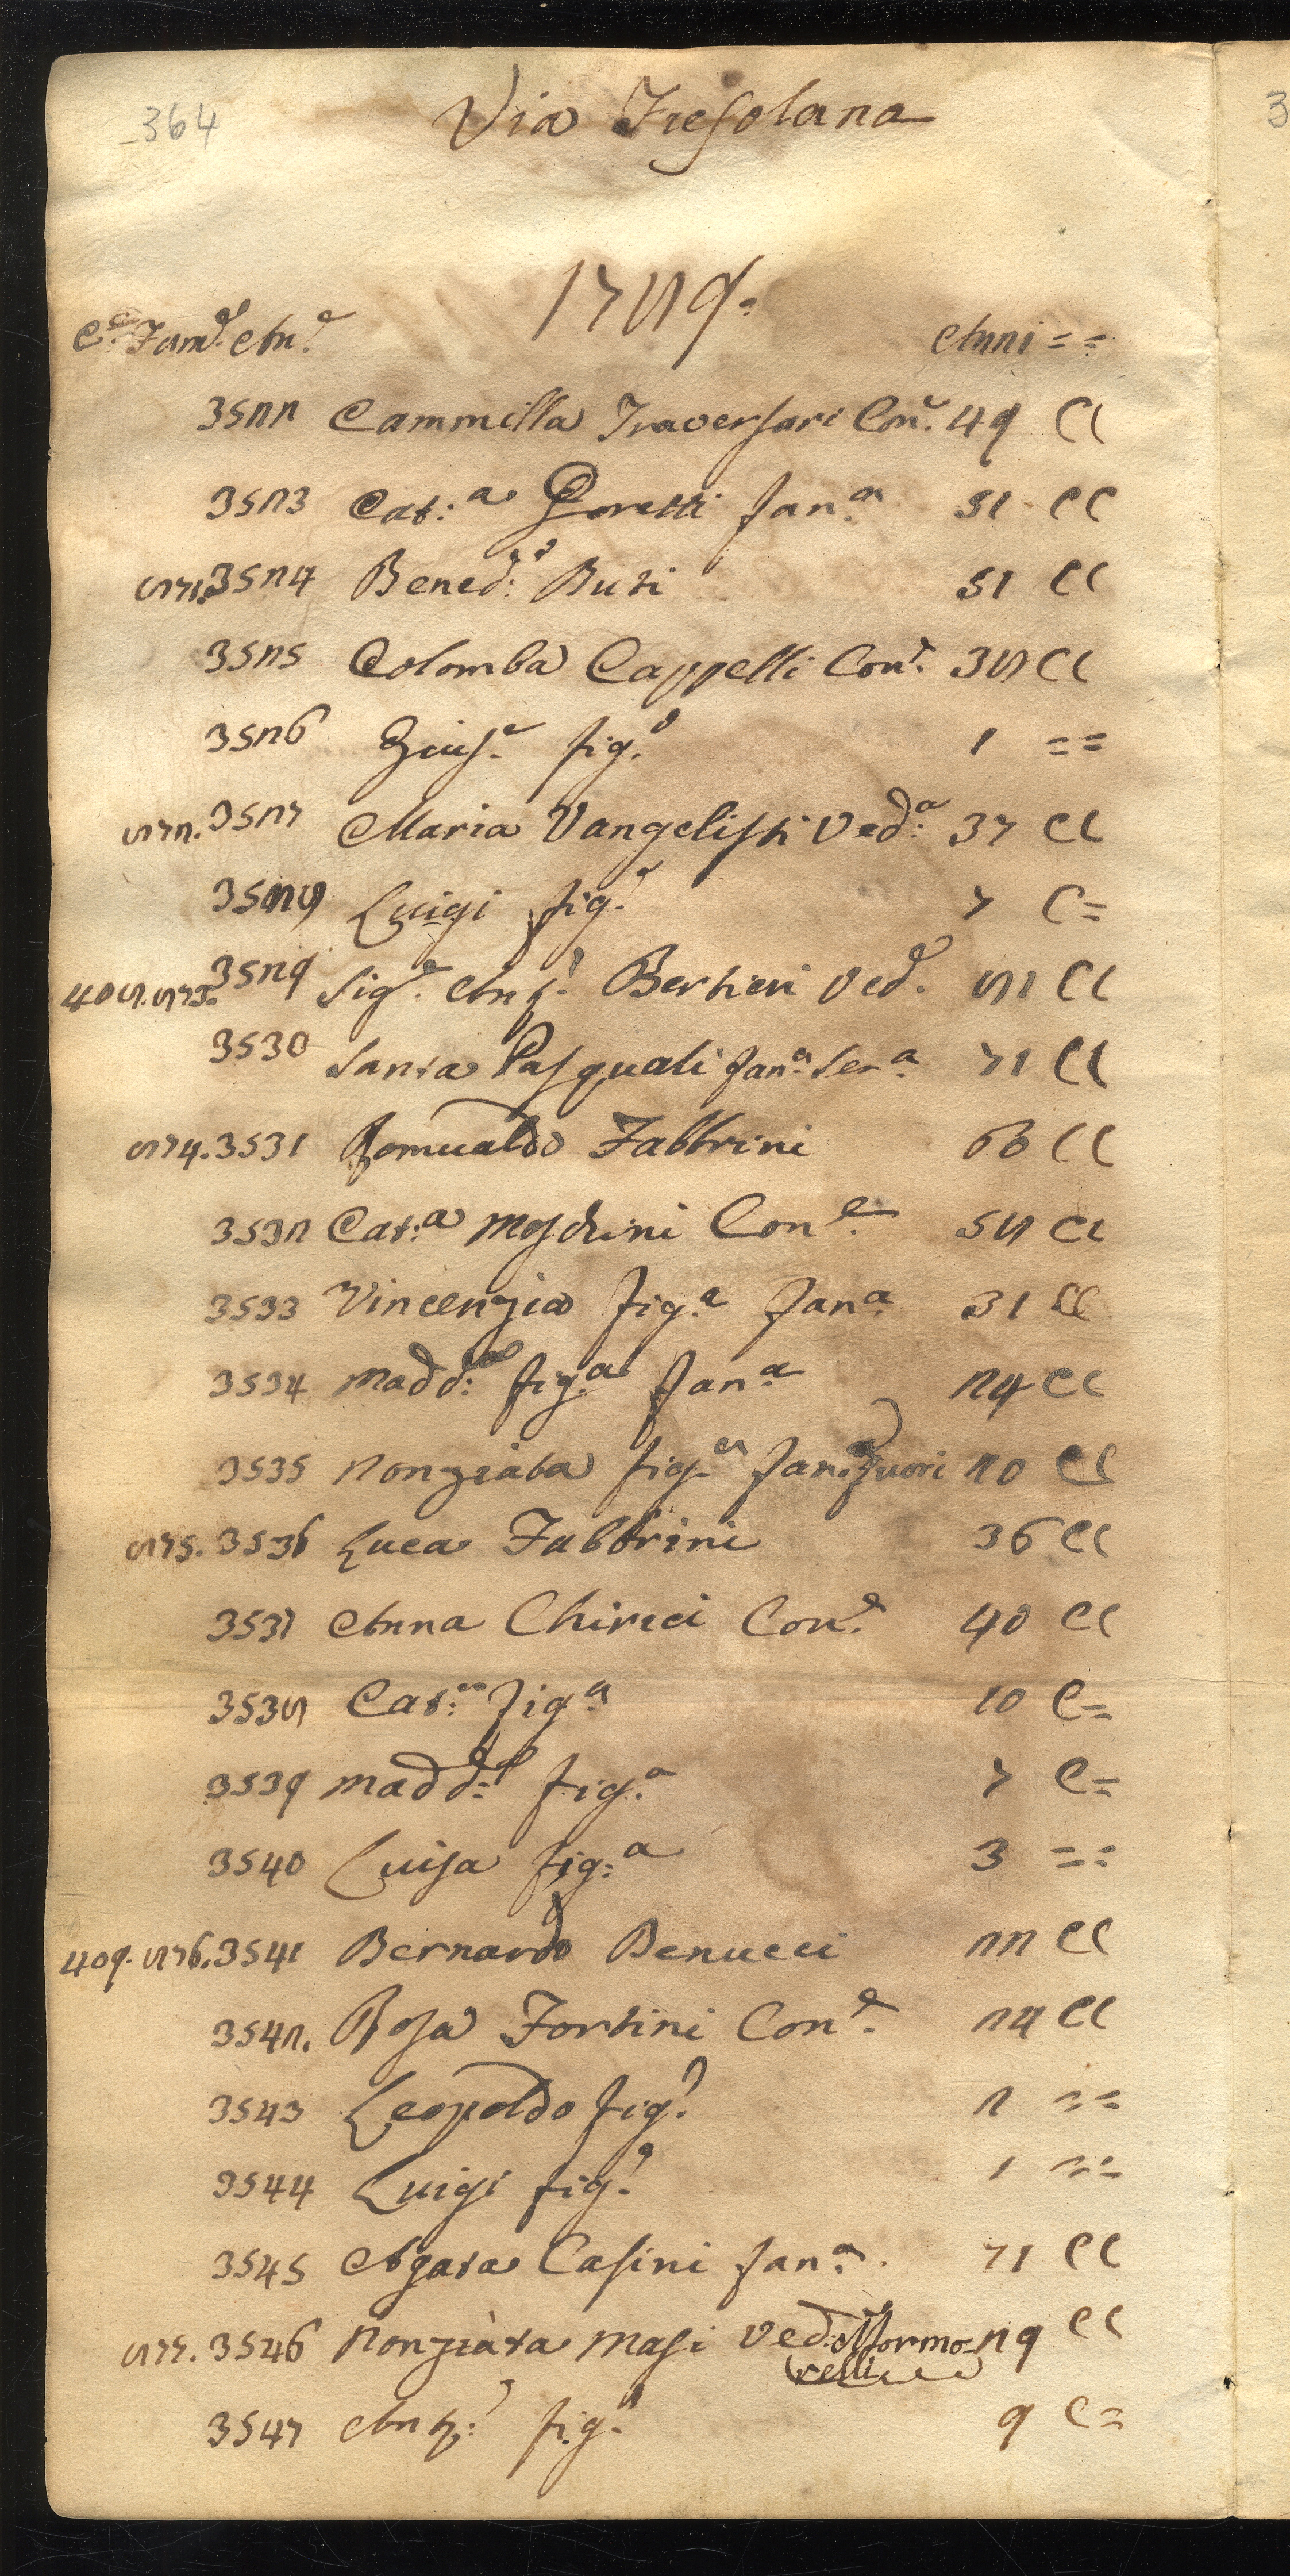 364
Via Fiesolana
3
1789.
C.e Fam.e An.e Anni = =
3522 Cammilla Traversari Con.e 49 CC
3523 Cat:a Poretti fan.a 51 CC
871. 3524 Bened:o Buti 51 CC
3525 Colomba Cappelli Con.e 38 CC
3526 Gius.e fig.o 1 = =
872. 3527 Maria Vangelisti Ved:a 37 CC
3528 Luigi fig.o 7 C =
408. 873. 3529 Sig.e Ant.o Bertieri Ved.o 81 CC
3530 Santa Pasquali fan.a Ser.a 71 CC
874. 3531 Romualdo Fabbrini 66 CC
3532 Cat:a Moschini Con.e 58 CC
3533 Vincenzia fig.a fan.a 31 CC
3534 Madd:a fig.a fan.a 24 CC
3535 Nonziata fig.a fan.a fuori 20 CC
875. 3536 Luca Fabbrini 36 CC
3537 Anna Chirici Con.e 40 CC
3538 Cat:a fig.a 10 C =
3539 Madd:a fig.a 7 C =
3540 Luisa fig:a 3 = =
409. 876. 3541 Bernardo Benucci 22 CC
3542. Rosa Fortini Con.e 24 CC
3543 Leopoldo fig.o 2 = =
3544 Luigi fig.o 1 = =
3545 Agata Casini fan.a 71 CC
877. 3546 Nonziàta Masi Ved:a Mormo- 29 CC
relli
3547 Ant:o fig.o 9 C =